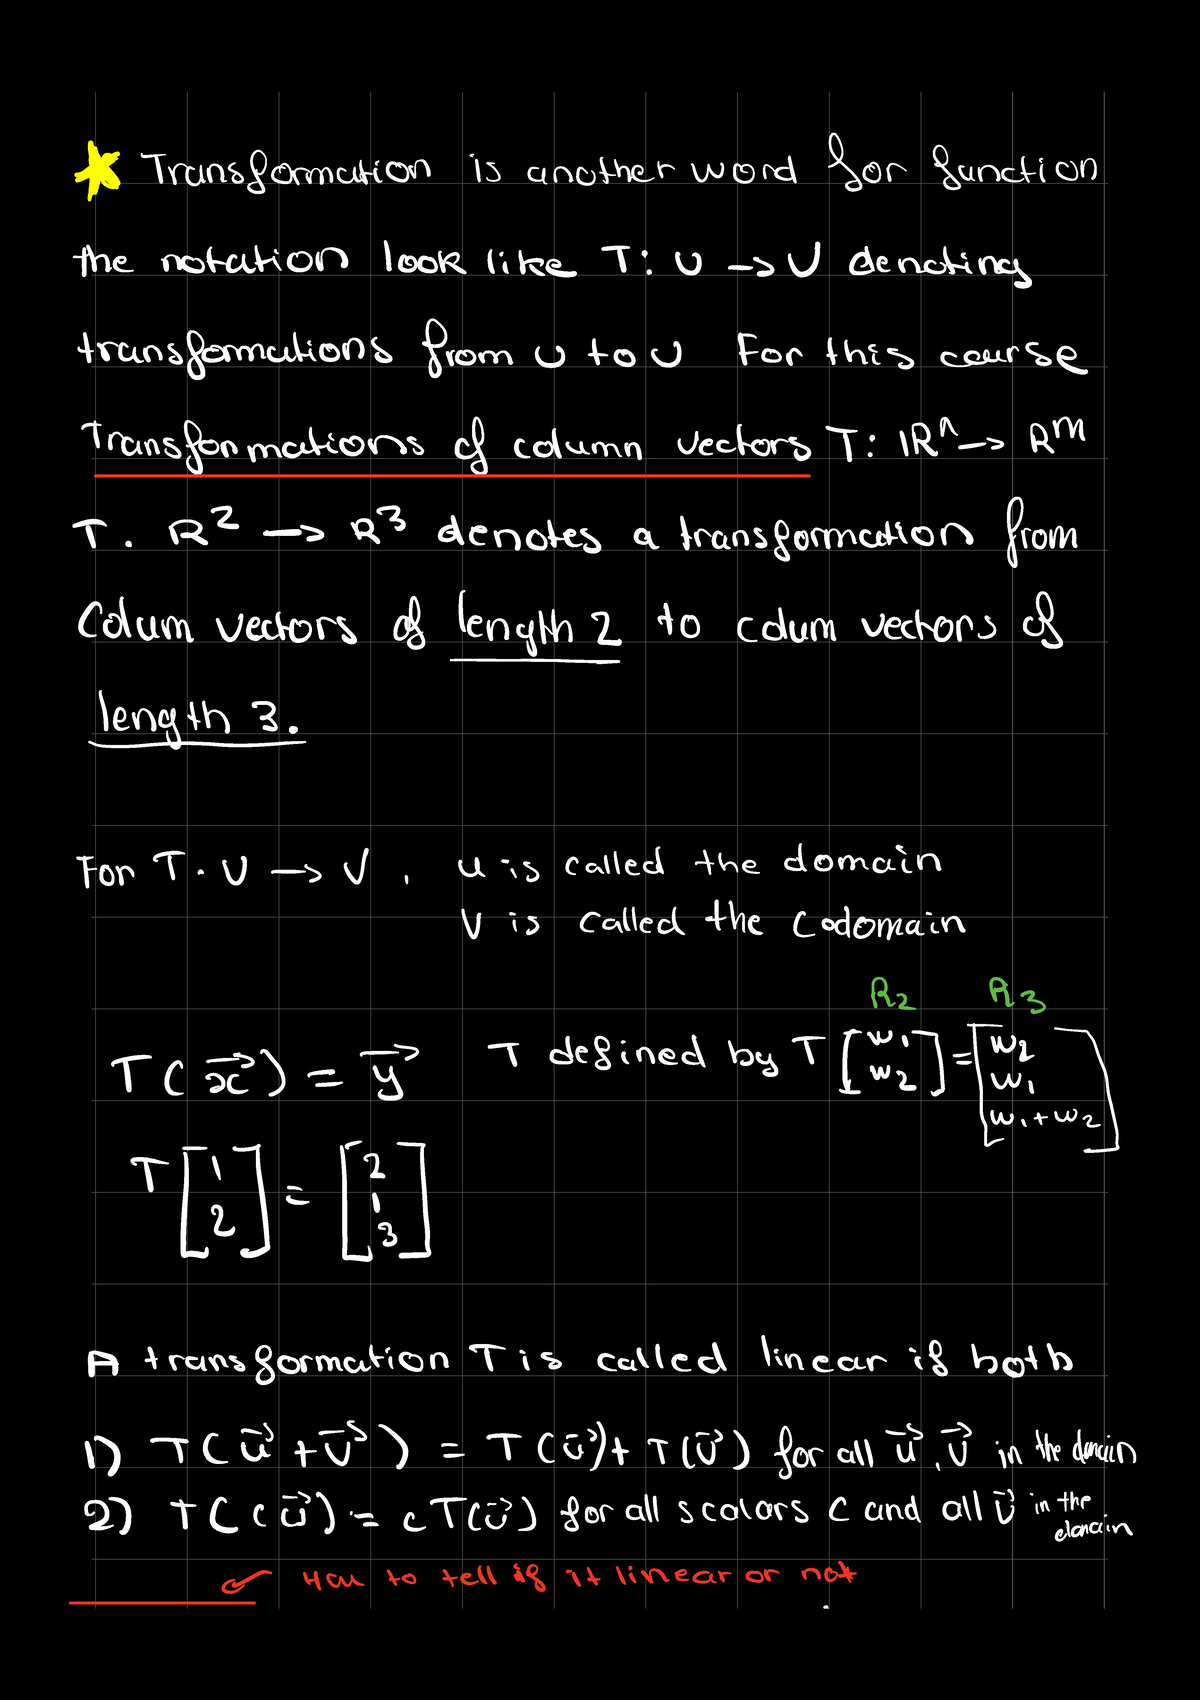 Transformation is another word for function
the notation look like T: U -> V denoting
transformations from U to U For this course
Transformations of column vectors T: IRⁿ -> Rᵐ
T. R² -> R³ denotes a transformation from
Colum vectors of length 2 to colum vectors of
length 3.
For T. U -> V, u is called the domain
V is called the Codomain
R₂ R₃
T(x⃗) = y⃗ T defined by T [w₁ w₂] = [w₂ w₁ w₁+w₂]
T [1 2] = [2 1 3]
A transformation T is called linear if both
1) T(u⃗ + v⃗) = T(u⃗) + T(v⃗) for all u⃗, v⃗ in the domain
2) T(c u⃗) = c T(u⃗) for all scalars C and all u⃗ in the domain
How to tell if it linear or not